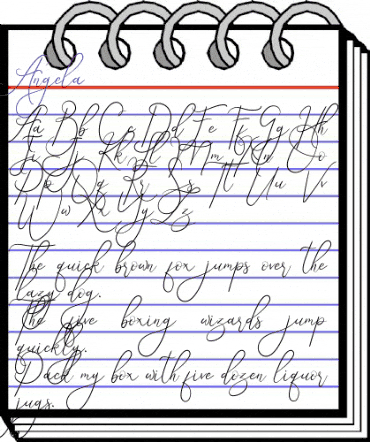 Angela
Aa Bb Cc Dd Ee Ff Gg Hh
Ii Jj Kk Ll Mm Nn Oo
Pp Qq Rr Ss Tt Uu Vv
Ww Xx Yy Zz
The quick brown fox jumps over the
lazy dog.
The five boxing wizards jump
quickly.
Pack my box with five dozen liquor
jugs.